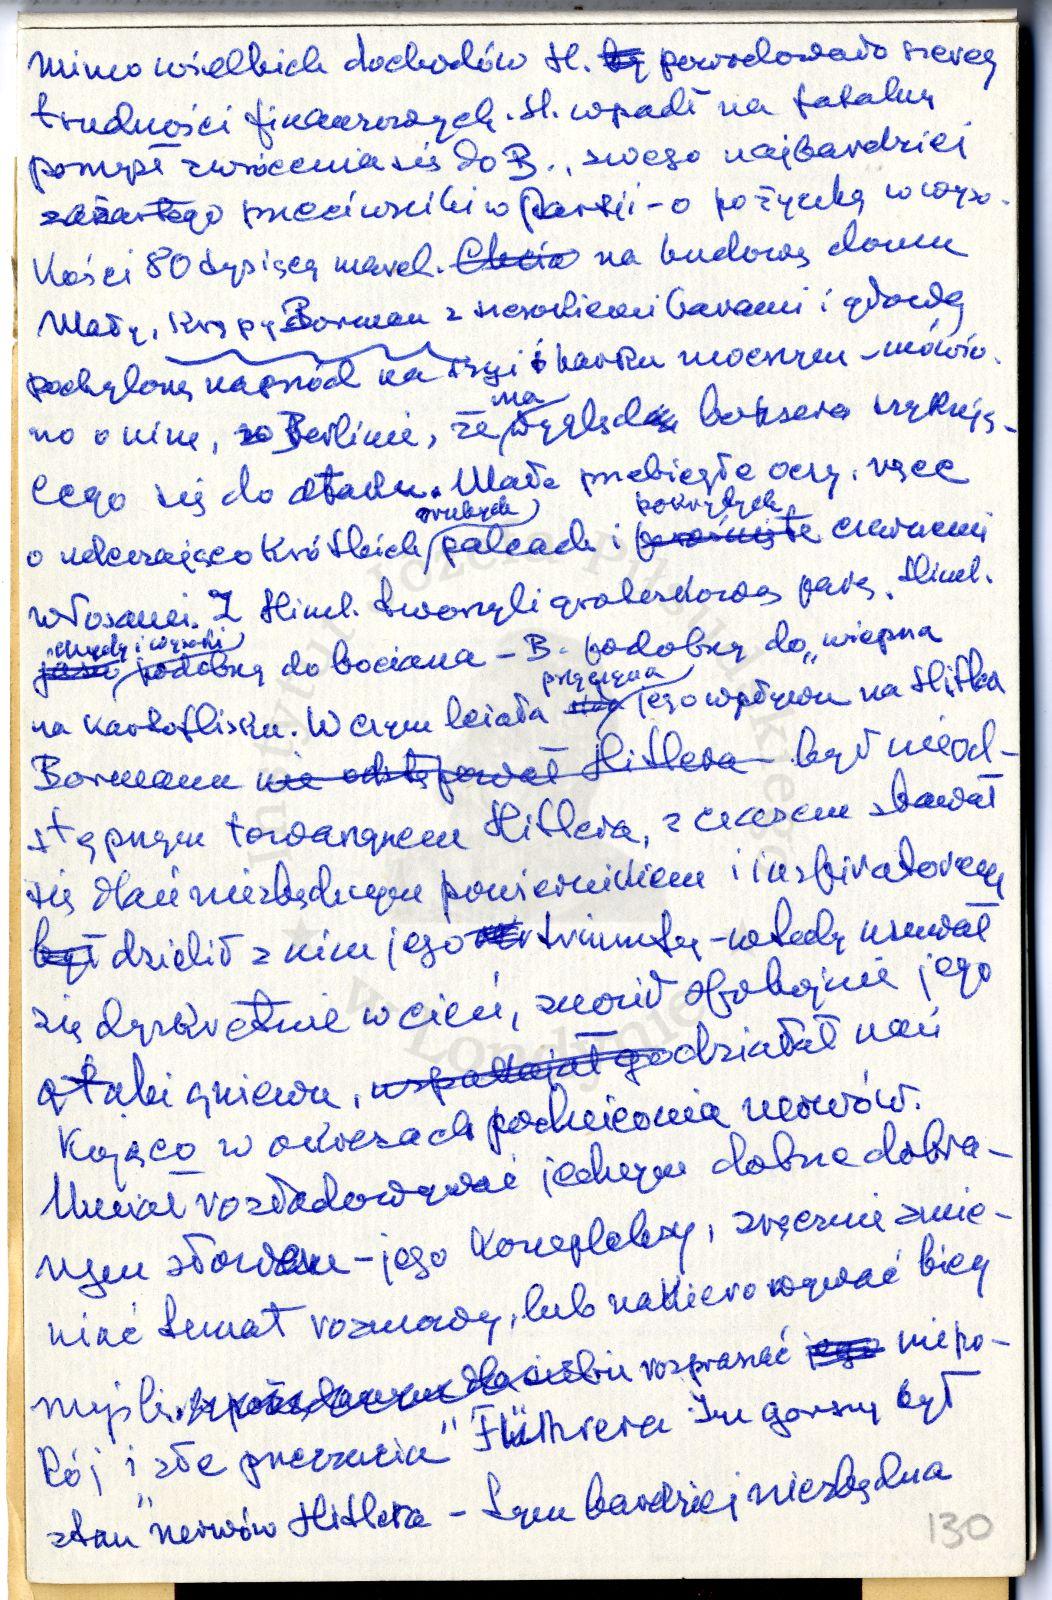 mimo wielkich dochodów H. powodowało szereg
trudności finansowych. H. wpadł na fatalny
pomysł zwrócenia się do B., swego najbardziej
zażartego przeciwnika w Partii – o pożyczkę w wyso-
kości 80 tysięcy marek. Chcia na budowę domu
Mały, krępy Borman z szerokiemi barami i głową
pochyloną naprzód na szyi i karku mocnym – mówio-
no o nim, w Berlinie, że ma wygląd boksera szykują-
cego się do ataku. Małe przebiegłe oczy, ręce
o uderzająco krótkich grubych palcach i pokrytych czarnemi
włosami. Z Himl. tworzyli groteskową parę. Himl.
chudy i wysoki podobny do bociana – B. podobny do "wieprza
na kartoflisku. W czym leżała przyczyna jego wpływu na Hitlera
Bormann nie odstępował Hitlera – był nieod-
stępnym towarzyszem Hitlera, z czasem stawał
się dlań niezbędnym powiernikiem i inspiratorem
był dzielił z nim jego triumfy – wtedy usuwał
się dyskretnie w cień, znosił spokojnie jego
ataki gniewu, uspakajał go działał nań
kojąco w okresach podniecenia nerwów.
Umiał rozładowywać jednym dobrze dobra-
nym słowem – jego kompleksy, zręcznie zmie-
niać temat rozmowy, lub nakierowywać bieg
myśli. w pożądanym dla siebie rozpraszać jego niepo-
kój i złe przeczucia" Führera Im gorszy był
stan "nerwów Hitlera – tym bardziej niezbędna
130
Instytut Józefa Piłsudskiego
w Londynie